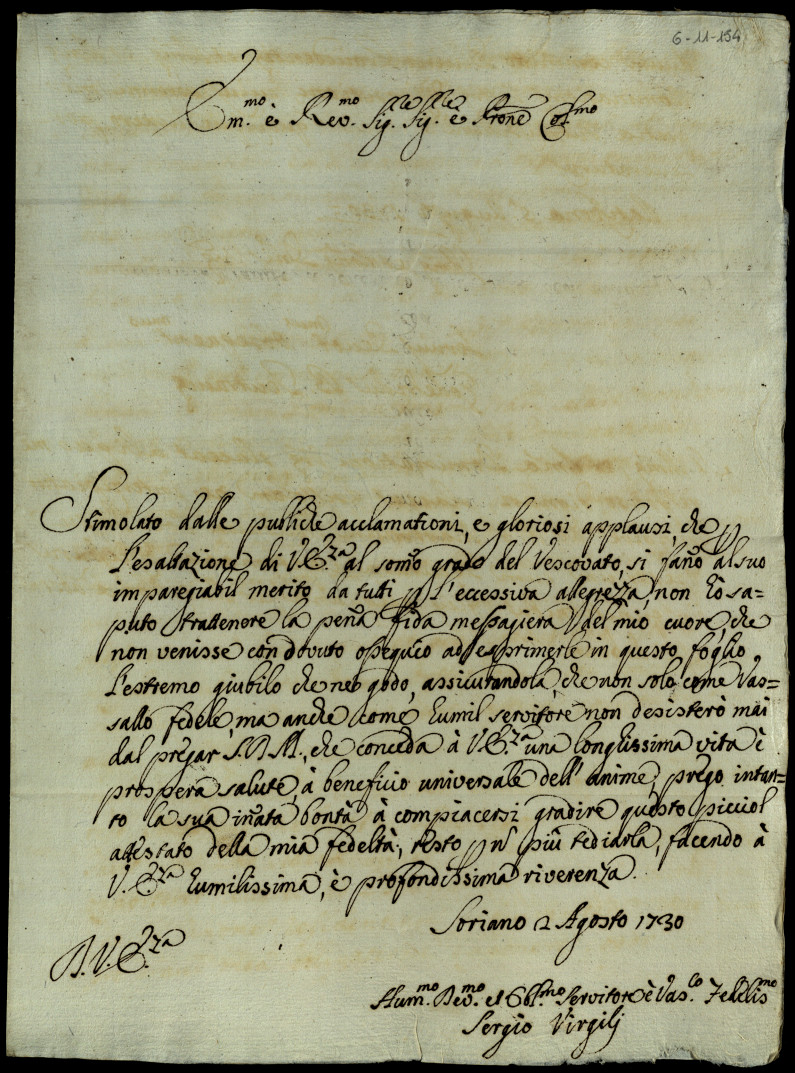 6-11-194
Em.mo è Rev.mo Sig.re Sig.re è Prone Col.mo
Stimolato dalle publiche acclamationi, e gloriosi applausi, che p
l'esaltazione di V. E.zza al somo grado del Vescovato, si fano al suo
imparegiabil merito da tutti p l'eccessiva allegrezza, non hò sa=
puto trattenere la pena fida messagiera del mio cuore, che
non venisse con dovuto osequio ad esprimerle in questo foglio
l'estremo giubilo che ne godo, assicurandola, che non solo come Vas=
sallo fedele, ma anche come humil servitore non desisterò mai
dal pregar S. D. M., che conceda à V. E.zza una longhissima vita è
prospera salute, à beneficio universale dell' anime, prego intan=
to la sua inata bontà à compiacersi gradire questo picciol
attestato della mia fedeltà, resto p n più tediarla, facendo à
V. E.zza humilissima, è profondissima riverenza.
Soriano 2 Agosto 1730
D. V. E.zza
Hum.mo Dev.mo et Obl.mo Servitore è Vas.lo Fedelis.mo
Sergio Virgilj